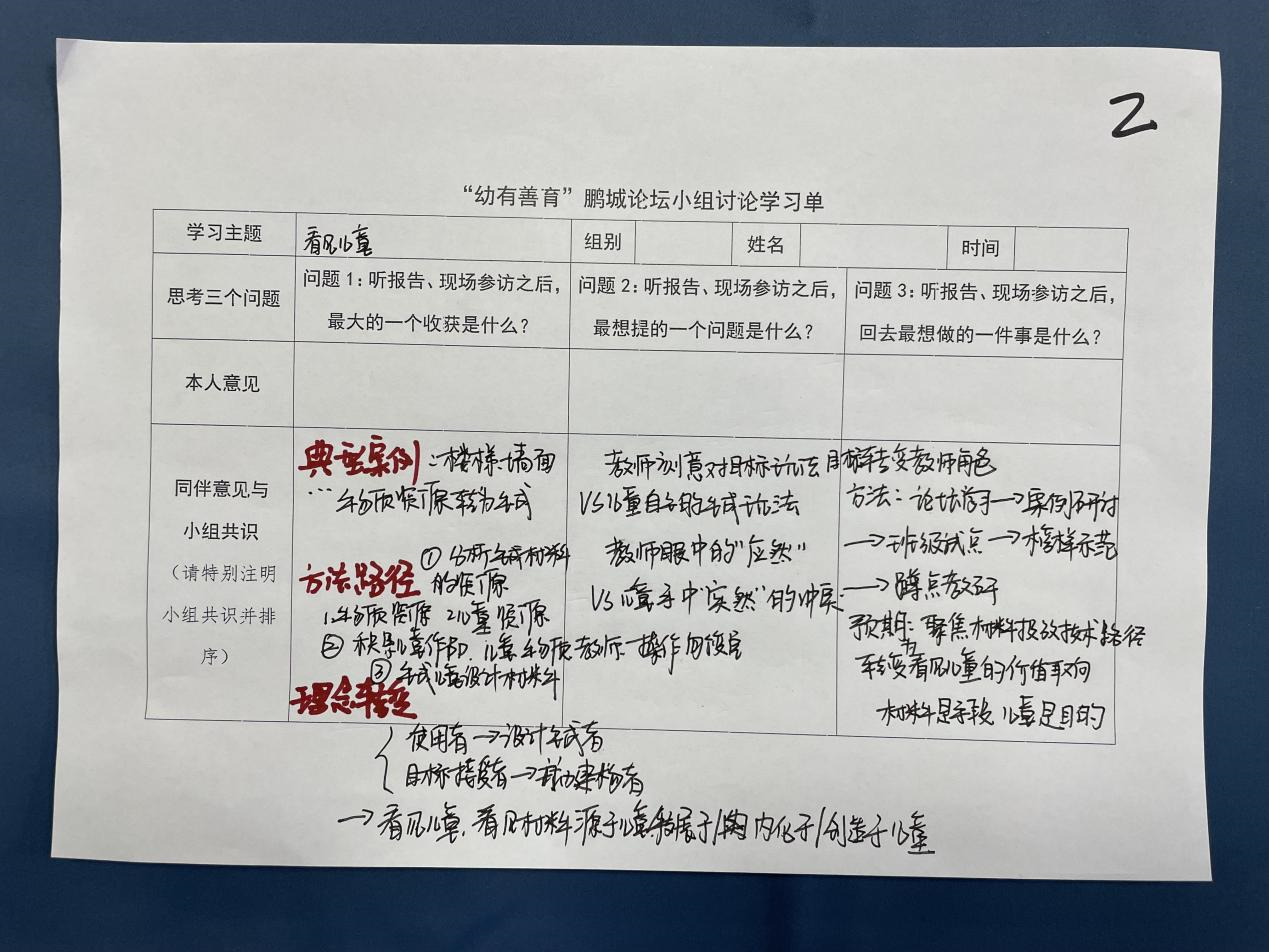 2
“幼有善育”鹏城论坛小组讨论学习单
学习主题 看见儿童 组别 姓名 时间
思考三个问题
问题1：听报告、现场参访之后，
最大的一个收获是什么？
问题2：听报告、现场参访之后，
最想提的一个问题是什么？
问题3：听报告、现场参访之后，
回去最想做的一件事是什么？
本人意见
同伴意见与
小组共识
（请特别注明
小组共识并排
序）
典型案例：楼梯墙面
… 物质资源转为
方法路径 ① 分析材料
的资源
1.物质资源 2儿童资源
② 积累儿童作品. 儿童 物质 教师 操作
③ 儿童设计材料
理念转变
使用者→设计者
目标接受者→主动建构者
→看见儿童, 看见材料源于儿童/发展于/内化于/创造于儿童
教师刻意对目标玩法
VS儿童自主的玩法
教师眼中的“应然”
VS儿童手中“实然”的冲突
目标转变教师角色
方法：论坛→案例研讨
→班级试点→榜样示范
→蹲点教研
预期：聚焦材料投放技术路径
转变为看见儿童的价值取向
材料是手段 儿童是目的